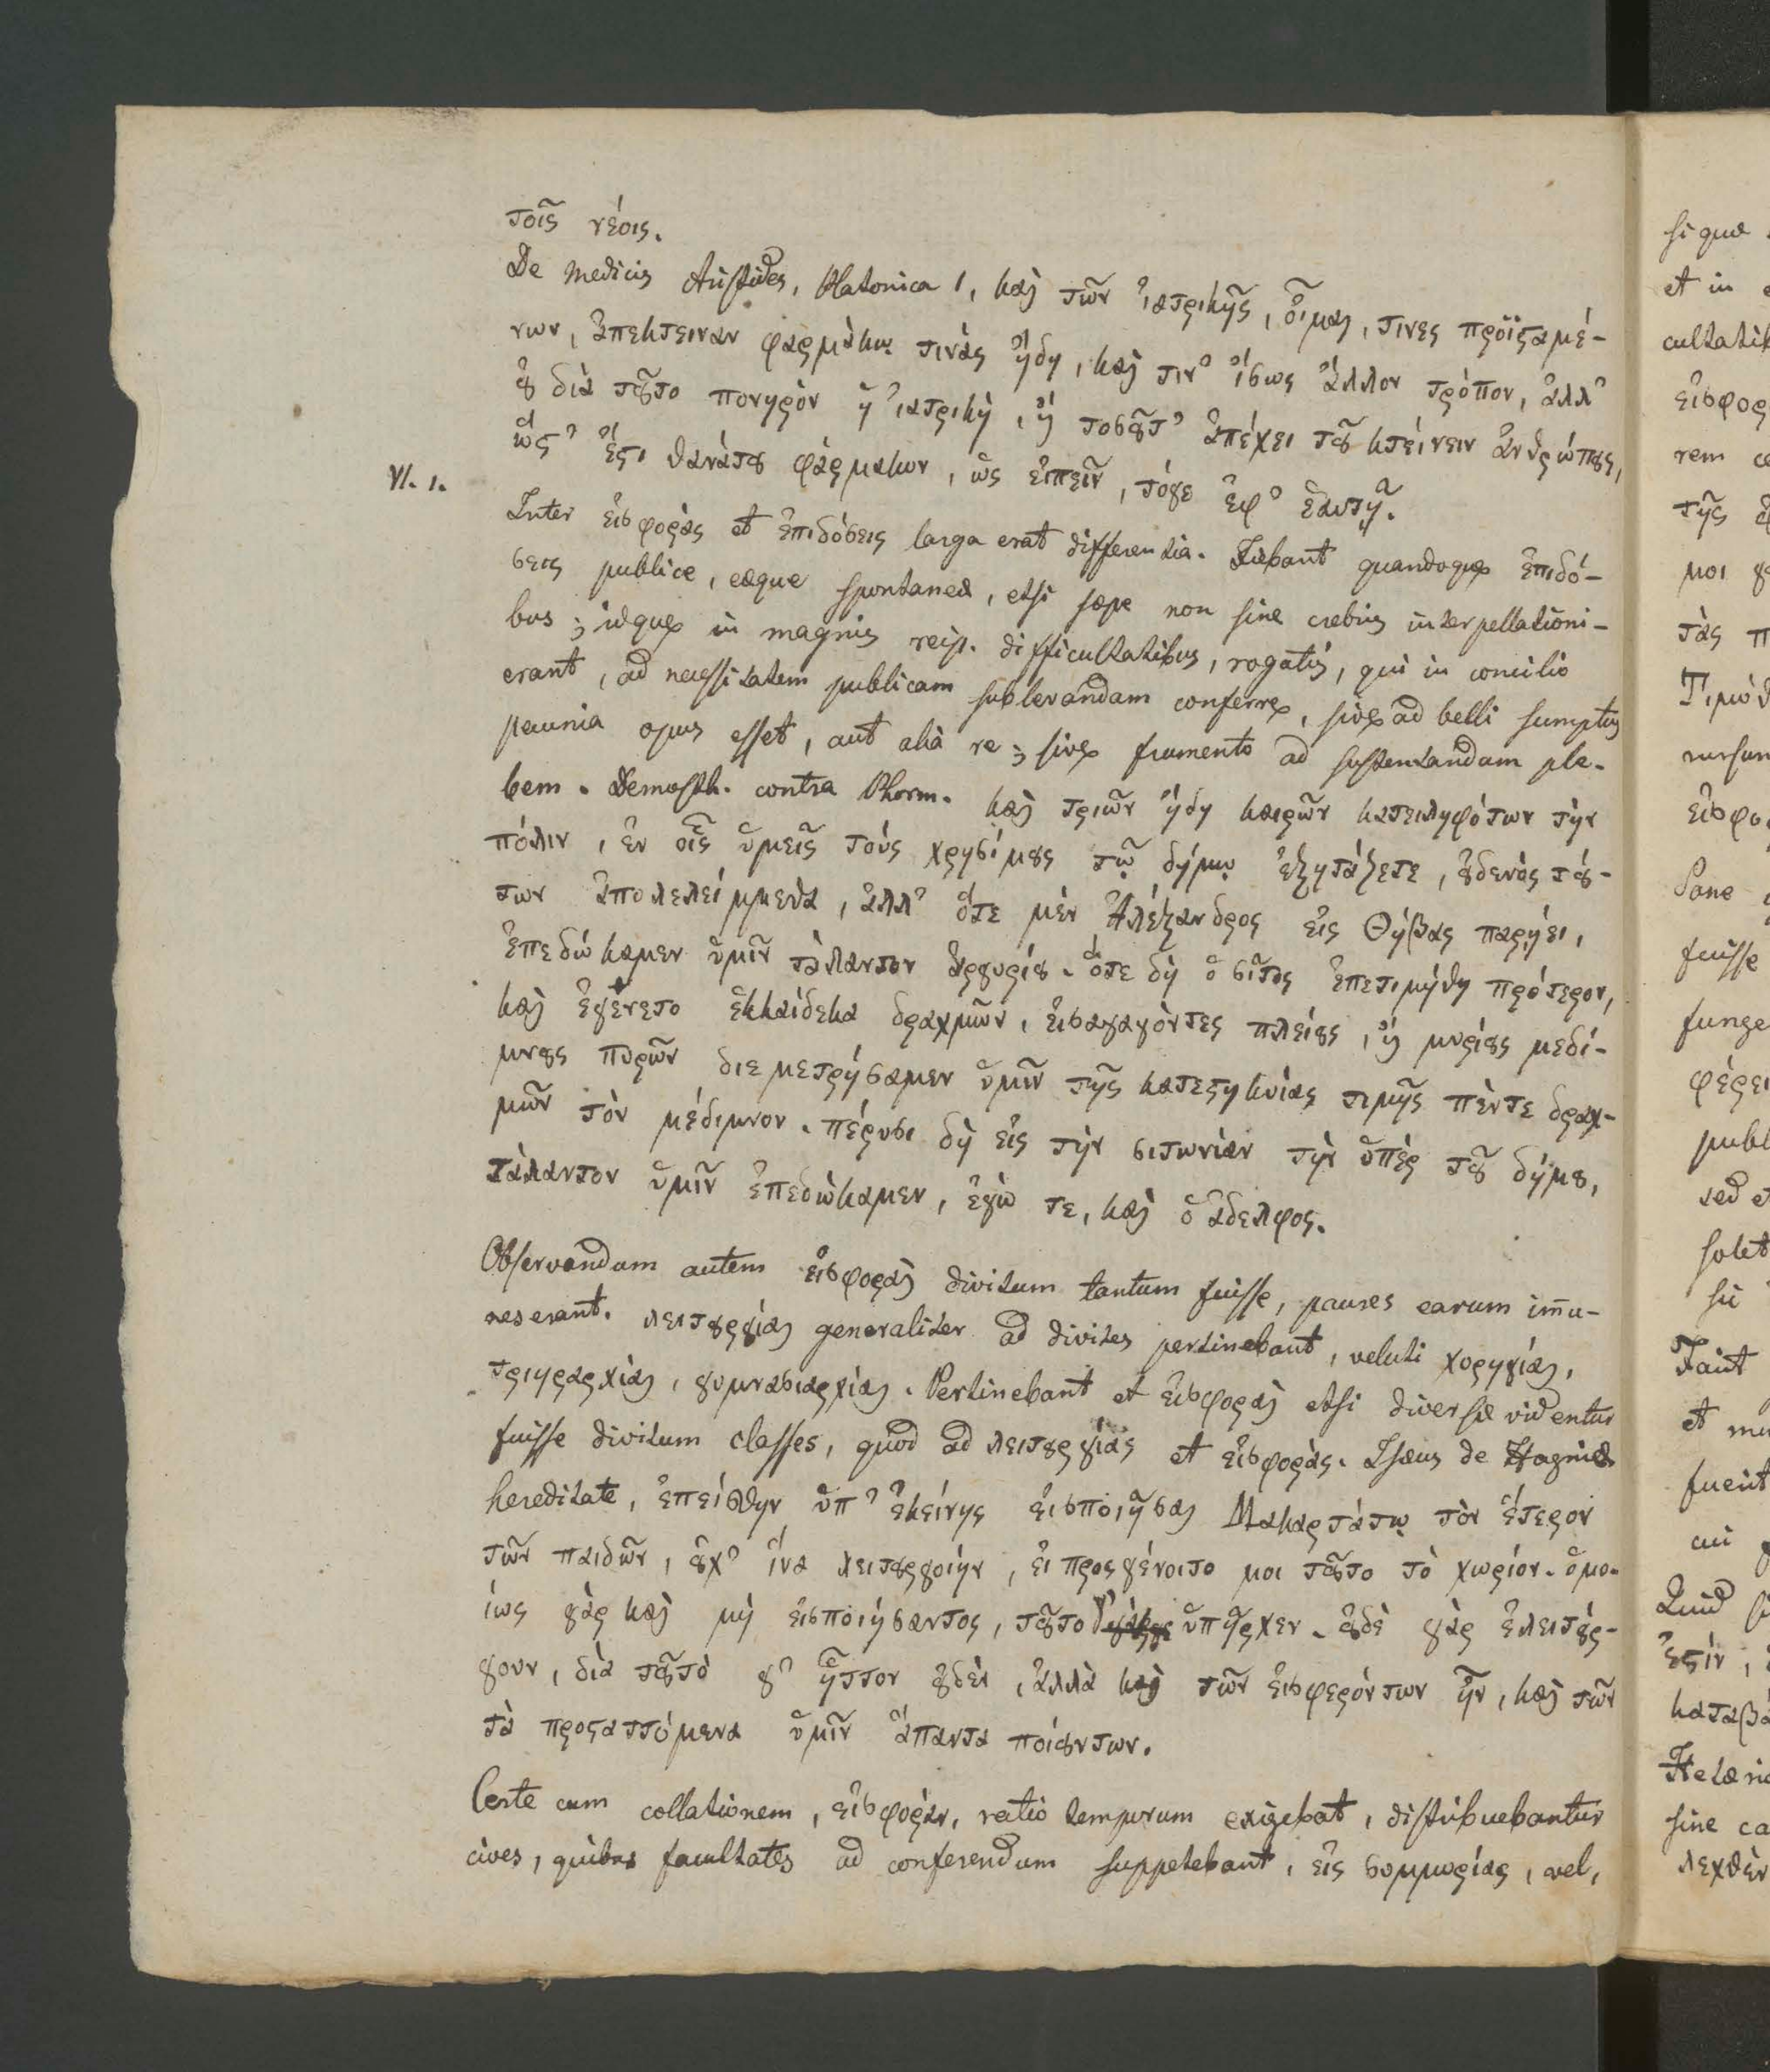 τοῖς νέοις.
De Medicis Aristides, Platonica 1, καὶ τῶν ἰατρικῆς, οἶμαι, τινες προϊϛαμέ-
νων, ἀπεκτειναν φαρμάκῳ τινάς ἤδη, καὶ τιν' ἴσως ἄλλον τρόπον, ἀλλ'
ȣ̓ διὰ τȣ͂το πονηρὸν ἡ ἰατρικὴ, ἢ τοσȣ͂τ' ἀπέχει τȣ͂ κτείνειν ἀνθρώπȣς,
ὥϛ' ἔϛι θανάτȣ φάρμακων, ὡς εἰπεῖν, τόγε ἐφ' ἑαυτῇ.
VI. 1.
Inter εἰσφορὰς et ἐπιδόσεις larga erat differentia. Fiebant quandoque ἐπιδό-
σεις publice, eæque spontaneæ, etsi sæpe non sine crebris interpellationi-
bus; idque in magnis reip. difficultatibus, rogatis, qui in concilio
erant, ad necessitatem publicam sublevandam conferre, sive ad belli sumptus
pecunia opus esset, aut aliâ re; sive frumento ad sustentandam ple-
bem. Demosth. contra Phorm. καὶ τριῶν ἤδη καιρῶν κατειληφότων τὴν
πόλιν, ἐν οἷς ὑμεῖς τούς χρησίμȣς τῷ δήμῳ ἐξητάζετε, ȣ̓δενὸς τȣ́-
των ἀπολελείμμεθα, ἀλλ' ὅτε μὲν Ἀλέξανδρος εἰς Θήβας παρῄει,
ἐπεδώκαμεν ὑμῖν τάλαντον ἀργυρίȣ. ὅτε δὴ ὁ σῖτος ἐπετιμήθη πρότερον,
καὶ ἐγένετο ἑκκαίδεκα δραχμῶν, εἰσαγαγόντες πλείȣς, ἢ μυρίȣς μεδί-
μνȣς πυρῶν διεμετρήσαμεν ὑμῖν τῆς κατεϛηκυίας τιμῆς πέντε δραχ-
μῶν τὸν μέδιμνον. πέρυσι δὴ εἰς τὴν σιτωνίαν τὴν ὑπὲρ τȣ͂ δήμȣ,
τάλαντον ὑμῖν ἐπεδώκαμεν, ἐγώ τε, καὶ ὁ ἀδελφος.
Observandum autem εἰσφορὰς divitum tantum fuisse, paures earum im̅u-
nes erant. λειτȣργίαι generaliter ad divites pertinebant, veluti χορηγίαι,
τριηραρχίαι, γυμνασιαρχίαι. Pertinebant et εἰσφοραὶ etsi diversæ videntur
fuisse divitum classes, quod ad λειτȣργίας et εἰσφοράς. Isæus de Hagniæ
hereditate, ἐπείσθην ὑπ' ἐκείνης εἰσποιῆσαι Μακαρτάτῳ τὸν ἕτερον
τῶν παιδῶν, ȣ̓χ' ἵνα λειτȣργοίην, εἰ προςγένοιτο μοι τȣ͂το τὸ χωρίον. ὁμο-
ίως γὰρ καὶ μὴ εἰσποιήσαντος, τȣ͂το ὑπῆρχεν. ȣ̓δὲ γὰρ ἐλειτȣ́ρ-
γουν, διὰ τȣ͂τό γ' ἧττον ȣ̓δὲν, ἀλλὰ καὶ τῶν εἰσφερόντων ἦν, καὶ τῶν
τὰ προςαττόμενα ὑμῖν ἅπαντα ποιȣ́ντων.
Certe cum collationem, εἰσφοράν, ratio temporum exigebat, distribuebantur
cives, quibus facultates ad conferendum suppetebant, εἰς συμμορίας, vel,